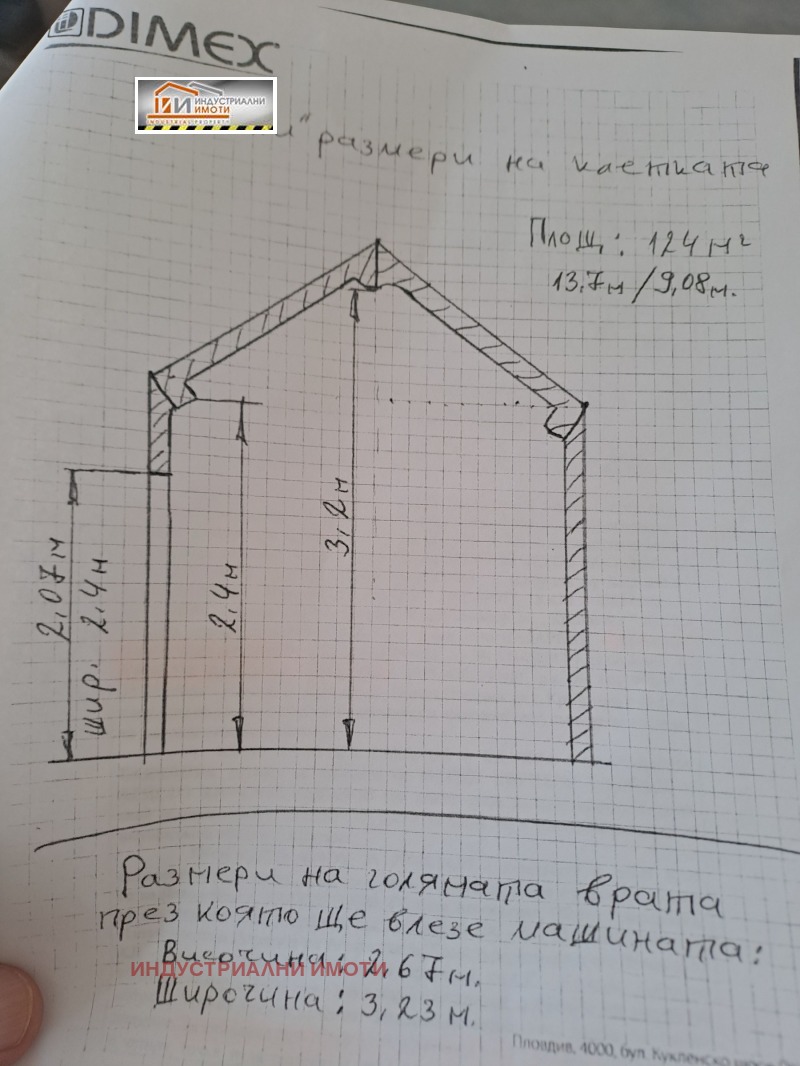 DIMEX
ИНДУСТРИАЛНИ
ИМОТИ
INDUSTRIAL PROPERTY
размери на клетката
Площ: 124 м²
13,7м/9,08м.
2,07м
шир. 2.4м
2.4м
3,2м
Размери на голямата врата
през която ще влезе машината:
Височина: 2,67м.
ИНДУСТРИАЛНИ ИМОТИ
Широчина: 3,23 м.
Пловдив, 4000, бул. Кукленско